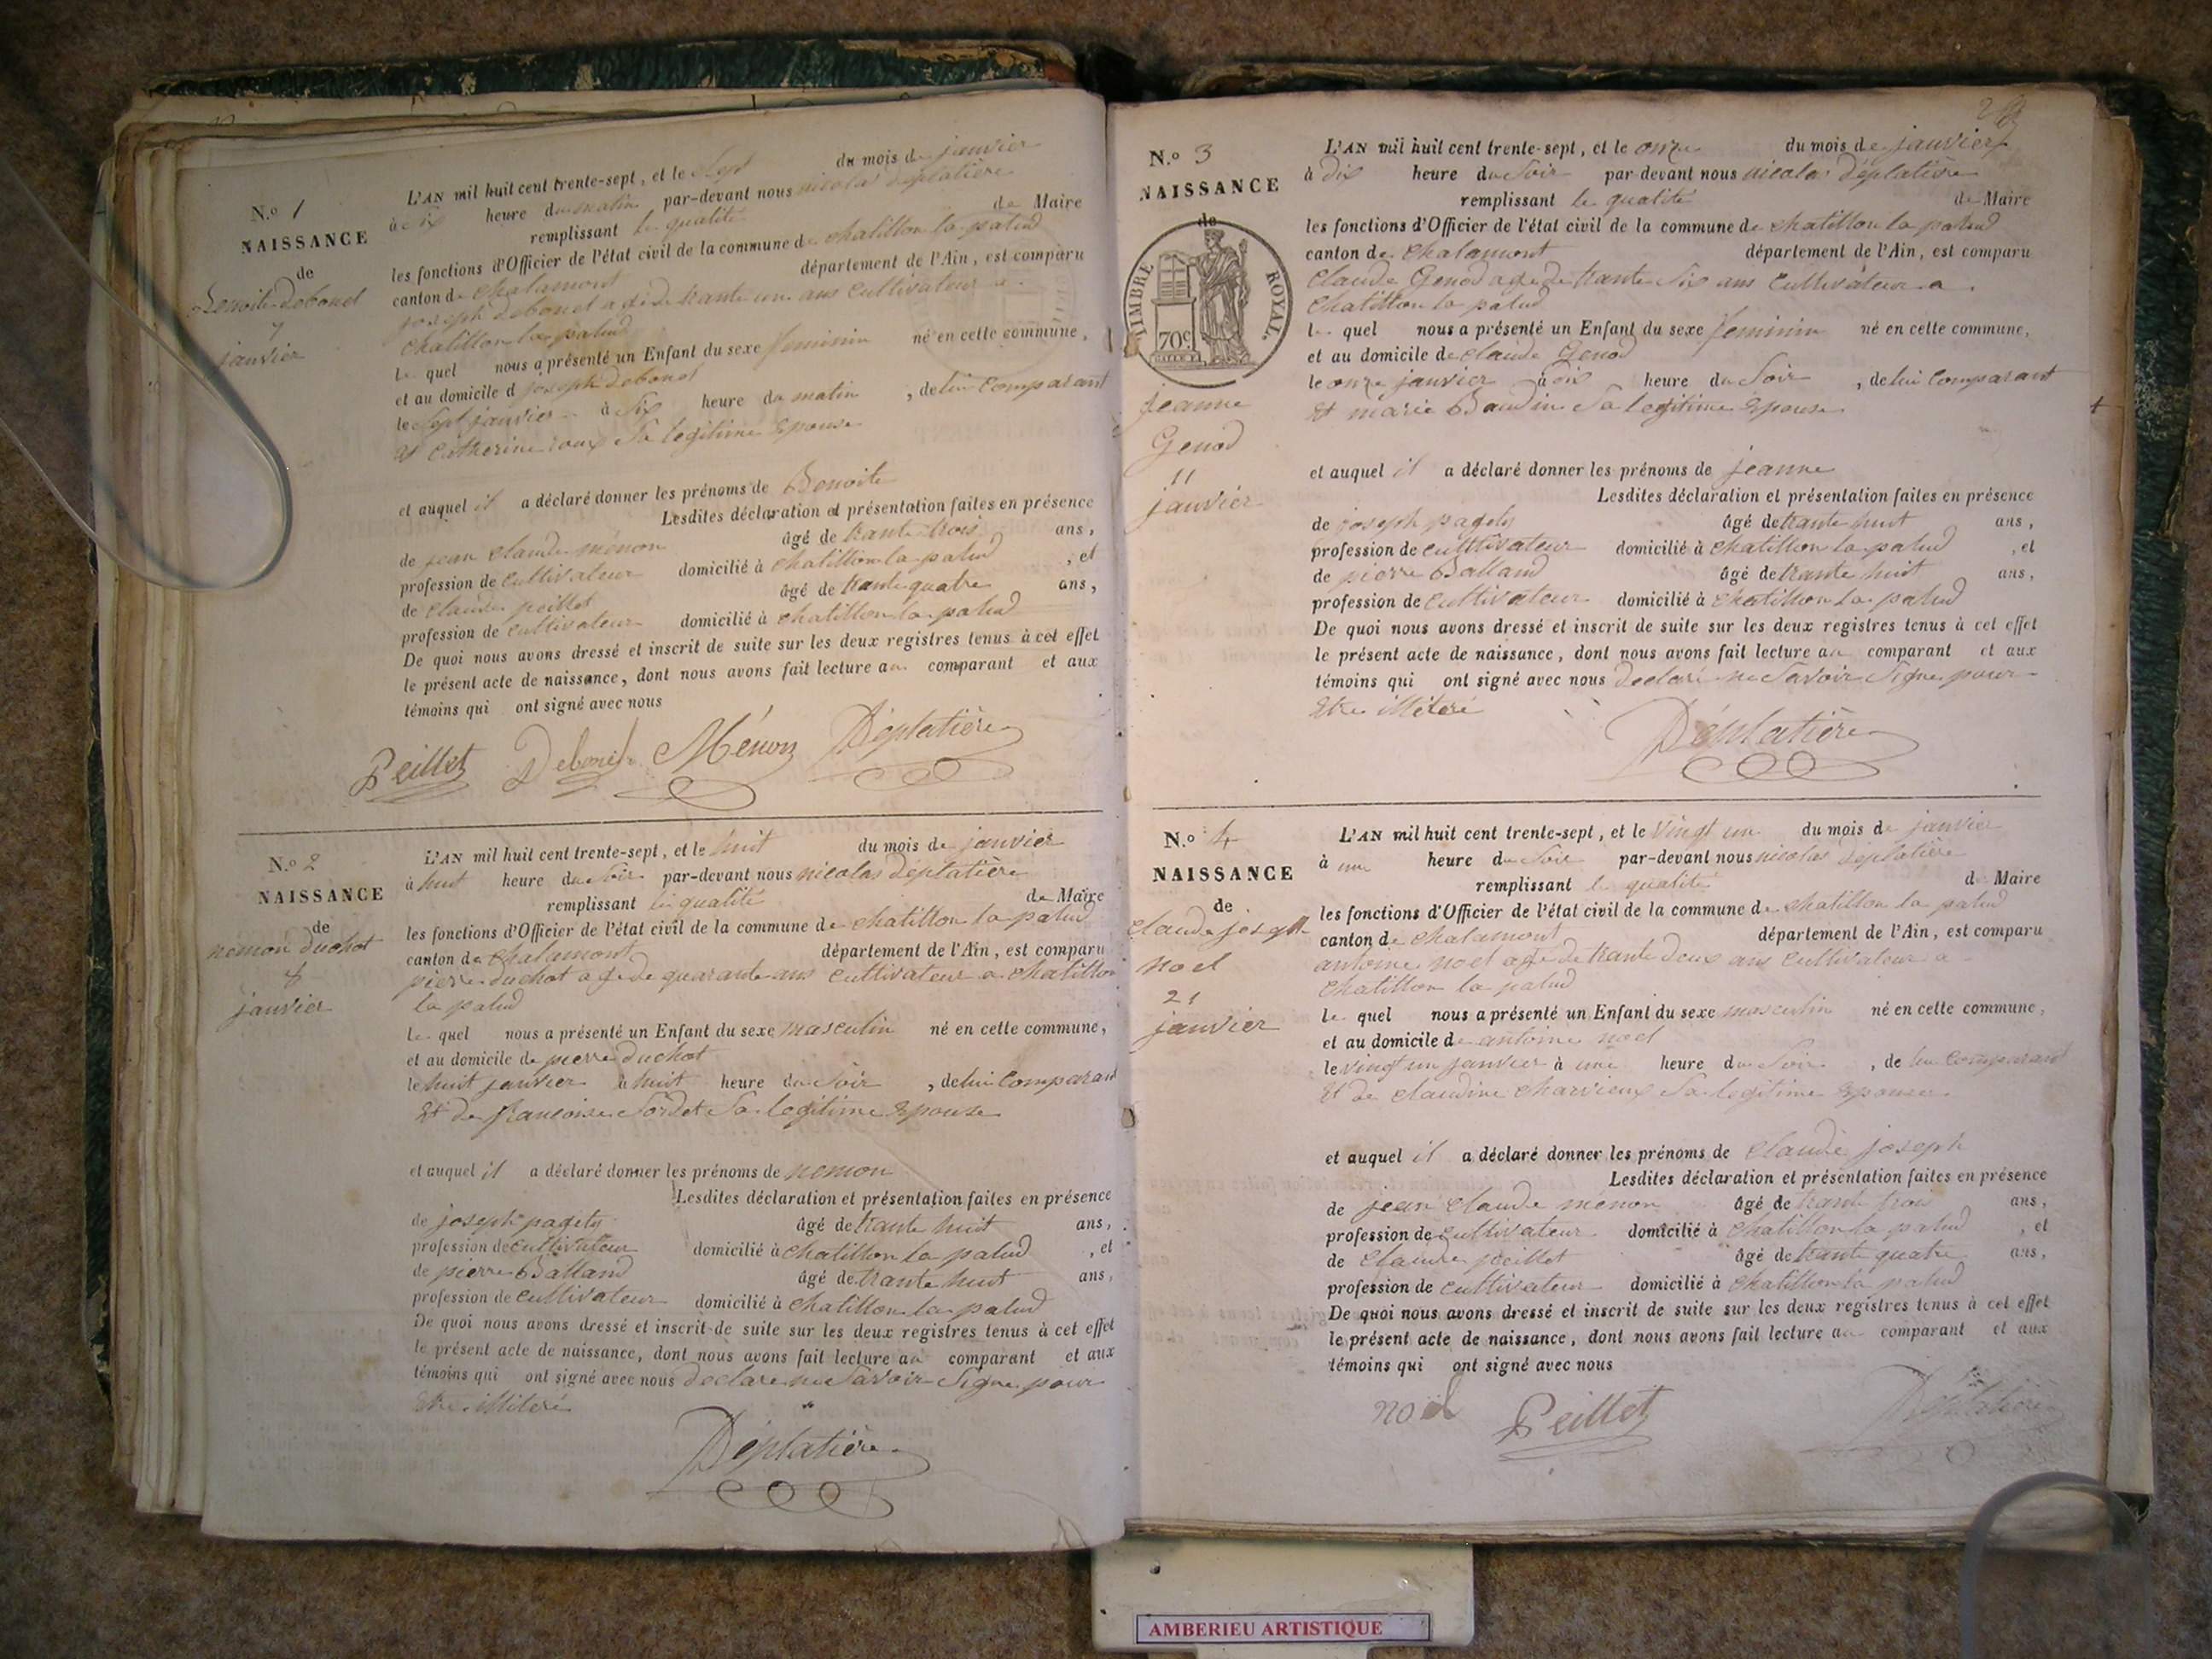 N.º 1
NAISSANCE
de
Benoite Debonet
7
janvier
L'AN mil huit cent trente-sept, et le sept du mois de janvier
à six heure du matin par-devant nous nicolas Déplatière
remplissant la qualité de Maire
les fonctions d'Officier de l'état civil de la commune de chatillon la palud
canton de chalamont département de l'Ain, est comparu
joseph Debonet agé de trante un ans cultivateur a
chatillon la palud
le quel nous a présenté un Enfant du sexe feminin né en cette commune,
et au domicile d joseph Debonet
le sept janvier à six heure du matin, de lui comparant
et catherine roux sa legitime epouse
et auquel il a déclaré donner les prénoms de Benoite
Lesdites déclaration et présentation faites en présence
de jean claude ménon âgé de trante trois ans,
profession de cultivateur domicilié à chatillon la palud, et
de claude peillet âgé de trante quatre ans,
profession de cultivateur domicilié à chatillon la palud
De quoi nous avons dressé et inscrit de suite sur les deux registres tenus à cet effet
le présent acte de naissance, dont nous avons fait lecture au comparant et aux
témoins qui ont signé avec nous
Peillet Debonet Ménon Déplatière
N.º 2
NAISSANCE
de
nemon duchot
8
janvier
L'AN mil huit cent trente-sept, et le huit du mois de janvier
à huit heure du soir par-devant nous nicolas Déplatière
remplissant la qualité de Maire
les fonctions d'Officier de l'état civil de la commune de chatillon la palud
canton de chalamont département de l'Ain, est comparu
pierre duchot agé de quarante ans cultivateur a chatillon
la palud
le quel nous a présenté un Enfant du sexe masculin né en cette commune,
et au domicile de pierre duchot
le huit janvier à huit heure du soir, de lui comparant
et de francoise Sordet sa legitime epouse
et auquel il a déclaré donner les prénoms de nemon
Lesdites déclaration et présentation faites en présence
de joseph pagety âgé de trante huit ans,
profession de cultivateur domicilié à chatillon la palud, et
de pierre Balland âgé de trante huit ans,
profession de cultivateur domicilié à chatillon la palud
De quoi nous avons dressé et inscrit de suite sur les deux registres tenus à cet effet
le présent acte de naissance, dont nous avons fait lecture au comparant et aux
témoins qui ont signé avec nous declare ne savoir signe pour
etre illiteré
Déplatière
N.º 3
NAISSANCE
de
TIMBRE ROYAL.
70c
jeanne
Genod
11
janvier
L'AN mil huit cent trente-sept, et le onze du mois de janvier
à dix heure du soir par devant nous nicolas Déplatière
remplissant la qualité de Maire
les fonctions d'Officier de l'état civil de la commune de chatillon la palud
canton de chalamont département de l'Ain, est comparu
claude Genod agé de trante six ans cultivateur a
chatillon la palud
le quel nous a présenté un Enfant du sexe feminin né en cette commune,
et au domicile de claude Genod
le onze janvier à dix heure du soir, de lui comparant
et marie Baudin sa legitime epouse
et auquel il a déclaré donner les prénoms de jeanne
Lesdites déclaration et présentation faites en présence
de joseph pagety âgé de trante huit ans,
profession de cultivateur domicilié à chatillon la palud, et
de pierre Balland âgé de trante huit ans,
profession de cultivateur domicilié à chatillon la palud
De quoi nous avons dressé et inscrit de suite sur les deux registres tenus à cet effet
le présent acte de naissance, dont nous avons fait lecture au comparant et aux
témoins qui ont signé avec nous declaré ne savoir signe pour
etre illiteré
Déplatière
N.º 4
NAISSANCE
de
claude joseph
noel
21
janvier
L'AN mil huit cent trente-sept, et le vingt un du mois de janvier
à une heure du soir par-devant nous nicolas Déplatière
remplissant la qualité de Maire
les fonctions d'Officier de l'état civil de la commune de chatillon la palud
canton de chalamont département de l'Ain, est comparu
antoine noel agé de trante deux ans cultivateur a
chatillon la palud
le quel nous a présenté un Enfant du sexe masculin né en cette commune,
et au domicile de antoine noel
le vingt un janvier à une heure du soir, de lui comparant
et de claudine charvieux sa legitime epouse
et auquel il a déclaré donner les prénoms de claude joseph
Lesdites déclaration et présentation faites en présence
de jean claude menon âgé de trante trois ans,
profession de cultivateur domicilié à chatillon la palud, et
de claude peillet âgé de trante quatre ans,
profession de cultivateur domicilié à chatillon la palud
De quoi nous avons dressé et inscrit de suite sur les deux registres tenus à cet effet
le présent acte de naissance, dont nous avons fait lecture au comparant et aux
témoins qui ont signé avec nous
noel Peillet Déplatière
AMBERIEU ARTISTIQUE